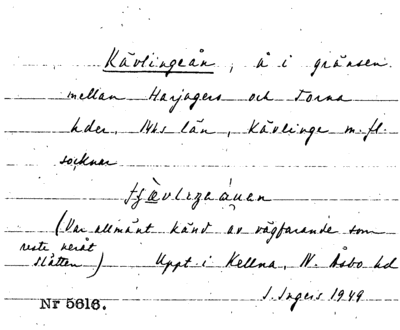 Kävlingeån, å i gränsen
mellan Harjagers och Torna
hder, M-hs län, Kävlinge m. fl.
socknar
(Var allmänt känd av vägfarande som
reste neråt
slätten) Uppt. i Kellna, N. Åsbo hd
I. Ingers 1949
Nr 5616.